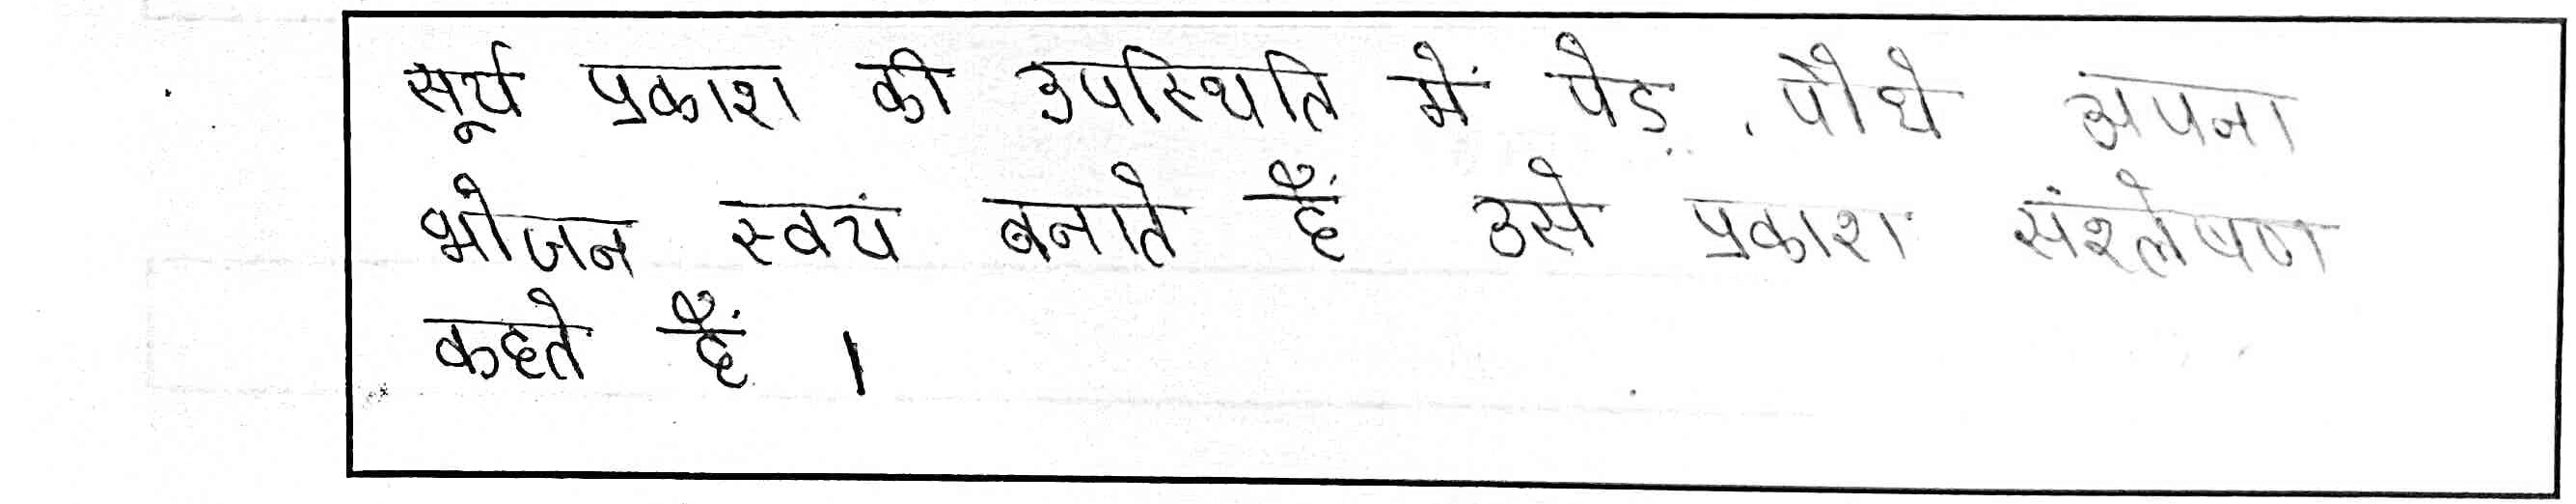 सूर्य प्रकाश की उपस्थिति में पेड़ . पौधे अपना
भोजन स्वयं बनाते हैं उसे प्रकाश संश्लेषण
कहते हैं ।